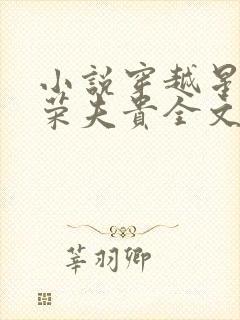 小説穿越星
荣夫貴全文
莘羽卿